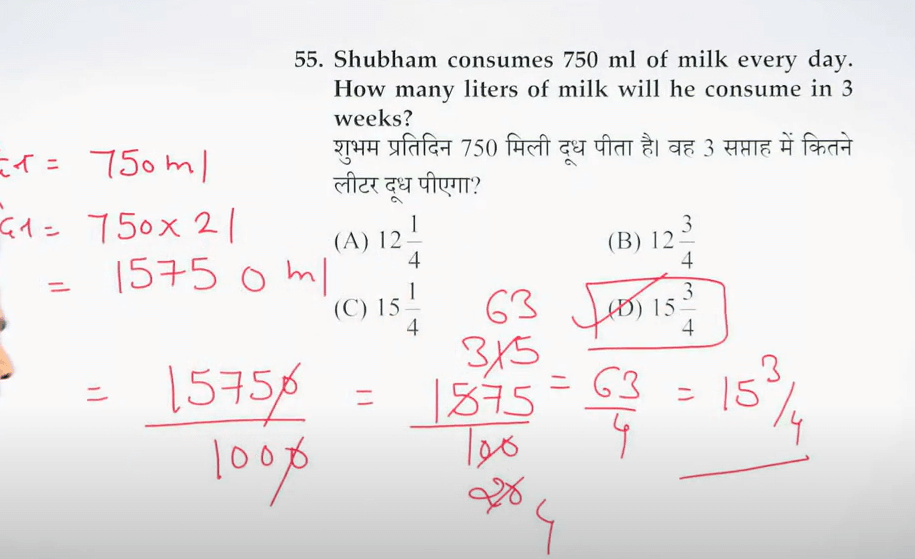 55. Shubham consumes 750 ml of milk every day.
How many liters of milk will he consume in 3
weeks?
शुभम प्रतिदिन 750 मिली दूध पीता है। वह 3 सप्ताह में कितने
लीटर दूध पीएगा?
(A) 12 1/4 (B) 12 3/4
(C) 15 1/4 (D) 15 3/4
= 750 ml
= 750 x 21
= 15750 ml
= 15750/1000 = 1575/100 = 63/4 = 15 3/4
315
63
20
4